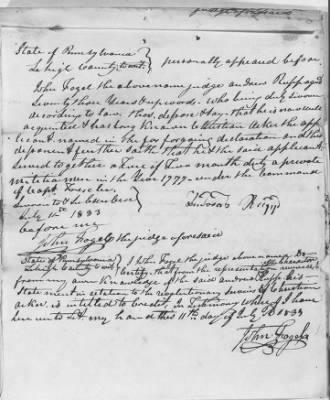 State of Pennsylvania
Lehigh County towit } personally appeared before
John Fogel the above name judge andrew Rupp aged
Seventy three Years & upwords - who being duly sworn
according to law, thos, depose & say that he is now well
acquinted & has long known Christian Acker the app
icant named in the for forgoing declaration and this
deponent further Saith that he & the said applicant
Served together a time of two month duty a private
militia men in the Year 1777 under the Command
of Capt
Sworn to & Subscribed
July 11th 1833
before me
John Fogel the judge aforesaid
State of Pennsylvania
Lehigh County towit } I John Fogel the judge above named Do
Certify that from the representation
from my own Knowledge of the said andrew Rupp his
State ment in relation to the revolutionary Services of Christian
acker, is intitled to Credit, In Testimony Where of I have
here unto Set my hand this 11th day of July 1833
John Fogel